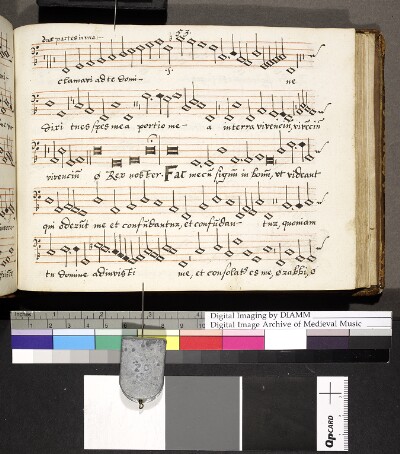 Duae partes in una
clamavi ad te Domi- ne
Dixi tu es spes mea portio me- a in terra vivenciū, vivēciū
vivenciū O Rex noster. Fac mecū signū in bonū, vt videant
qui oderūt me et confūdantur, et confūdan- tur, quoniam
tu domine adiuvisti me, et consolatꝰ es me, o rabbi, o
Digital Imaging by DIAMM
Digital Image Archive of Medieval Music
QPCARD